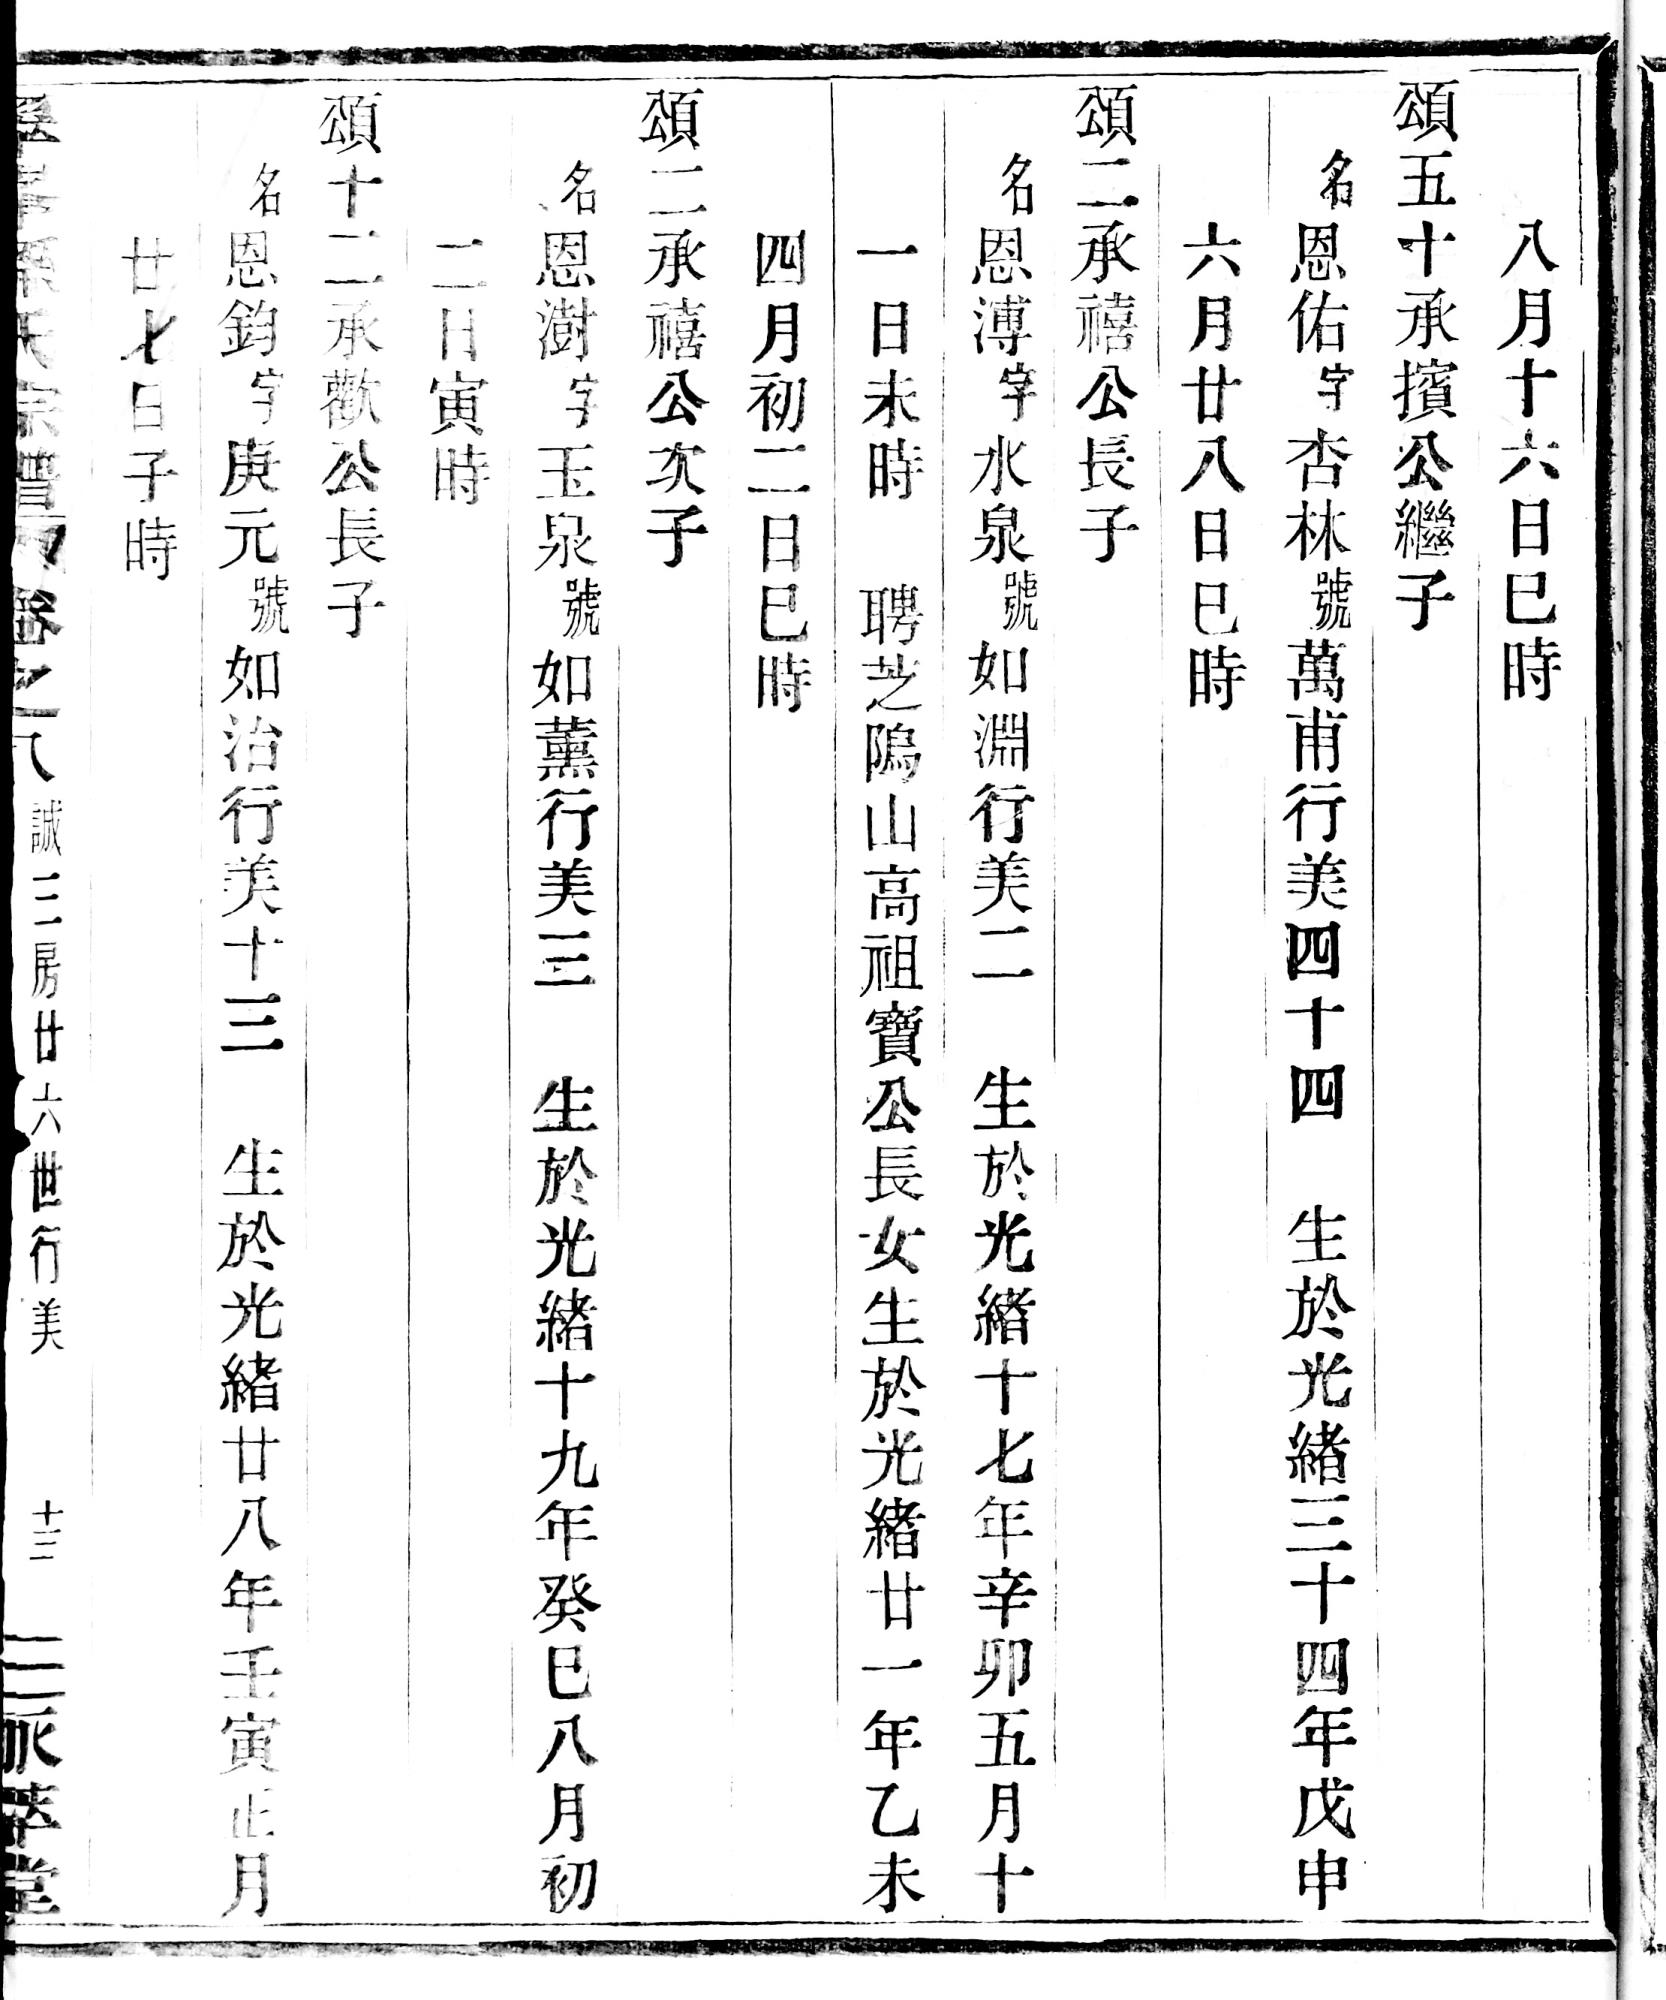 八月十六日巳時
頌五十承擯公繼子
名恩佑字杏林號萬甫行美四十四　生於光緒三十四年戊申
六月廿八日巳時
頌二承禧公長子
名恩溥字水泉號如淵行美二　生於光緒十七年辛卯五月十
一日未時　聘芝隖山高祖寶公長女生於光緒廿一年乙未
四月初二日巳時
頌二承禧公次子
名恩澍字玉泉號如薰行美三　生於光緒十九年癸巳八月初
二日寅時
頌十二承歡公長子
名恩鈞字庚元號如治行美十三　生於光緒廿八年壬寅正月
廿七日子時
氏宗譜卷之八　誠三房廿六世行美　十三　萃堂